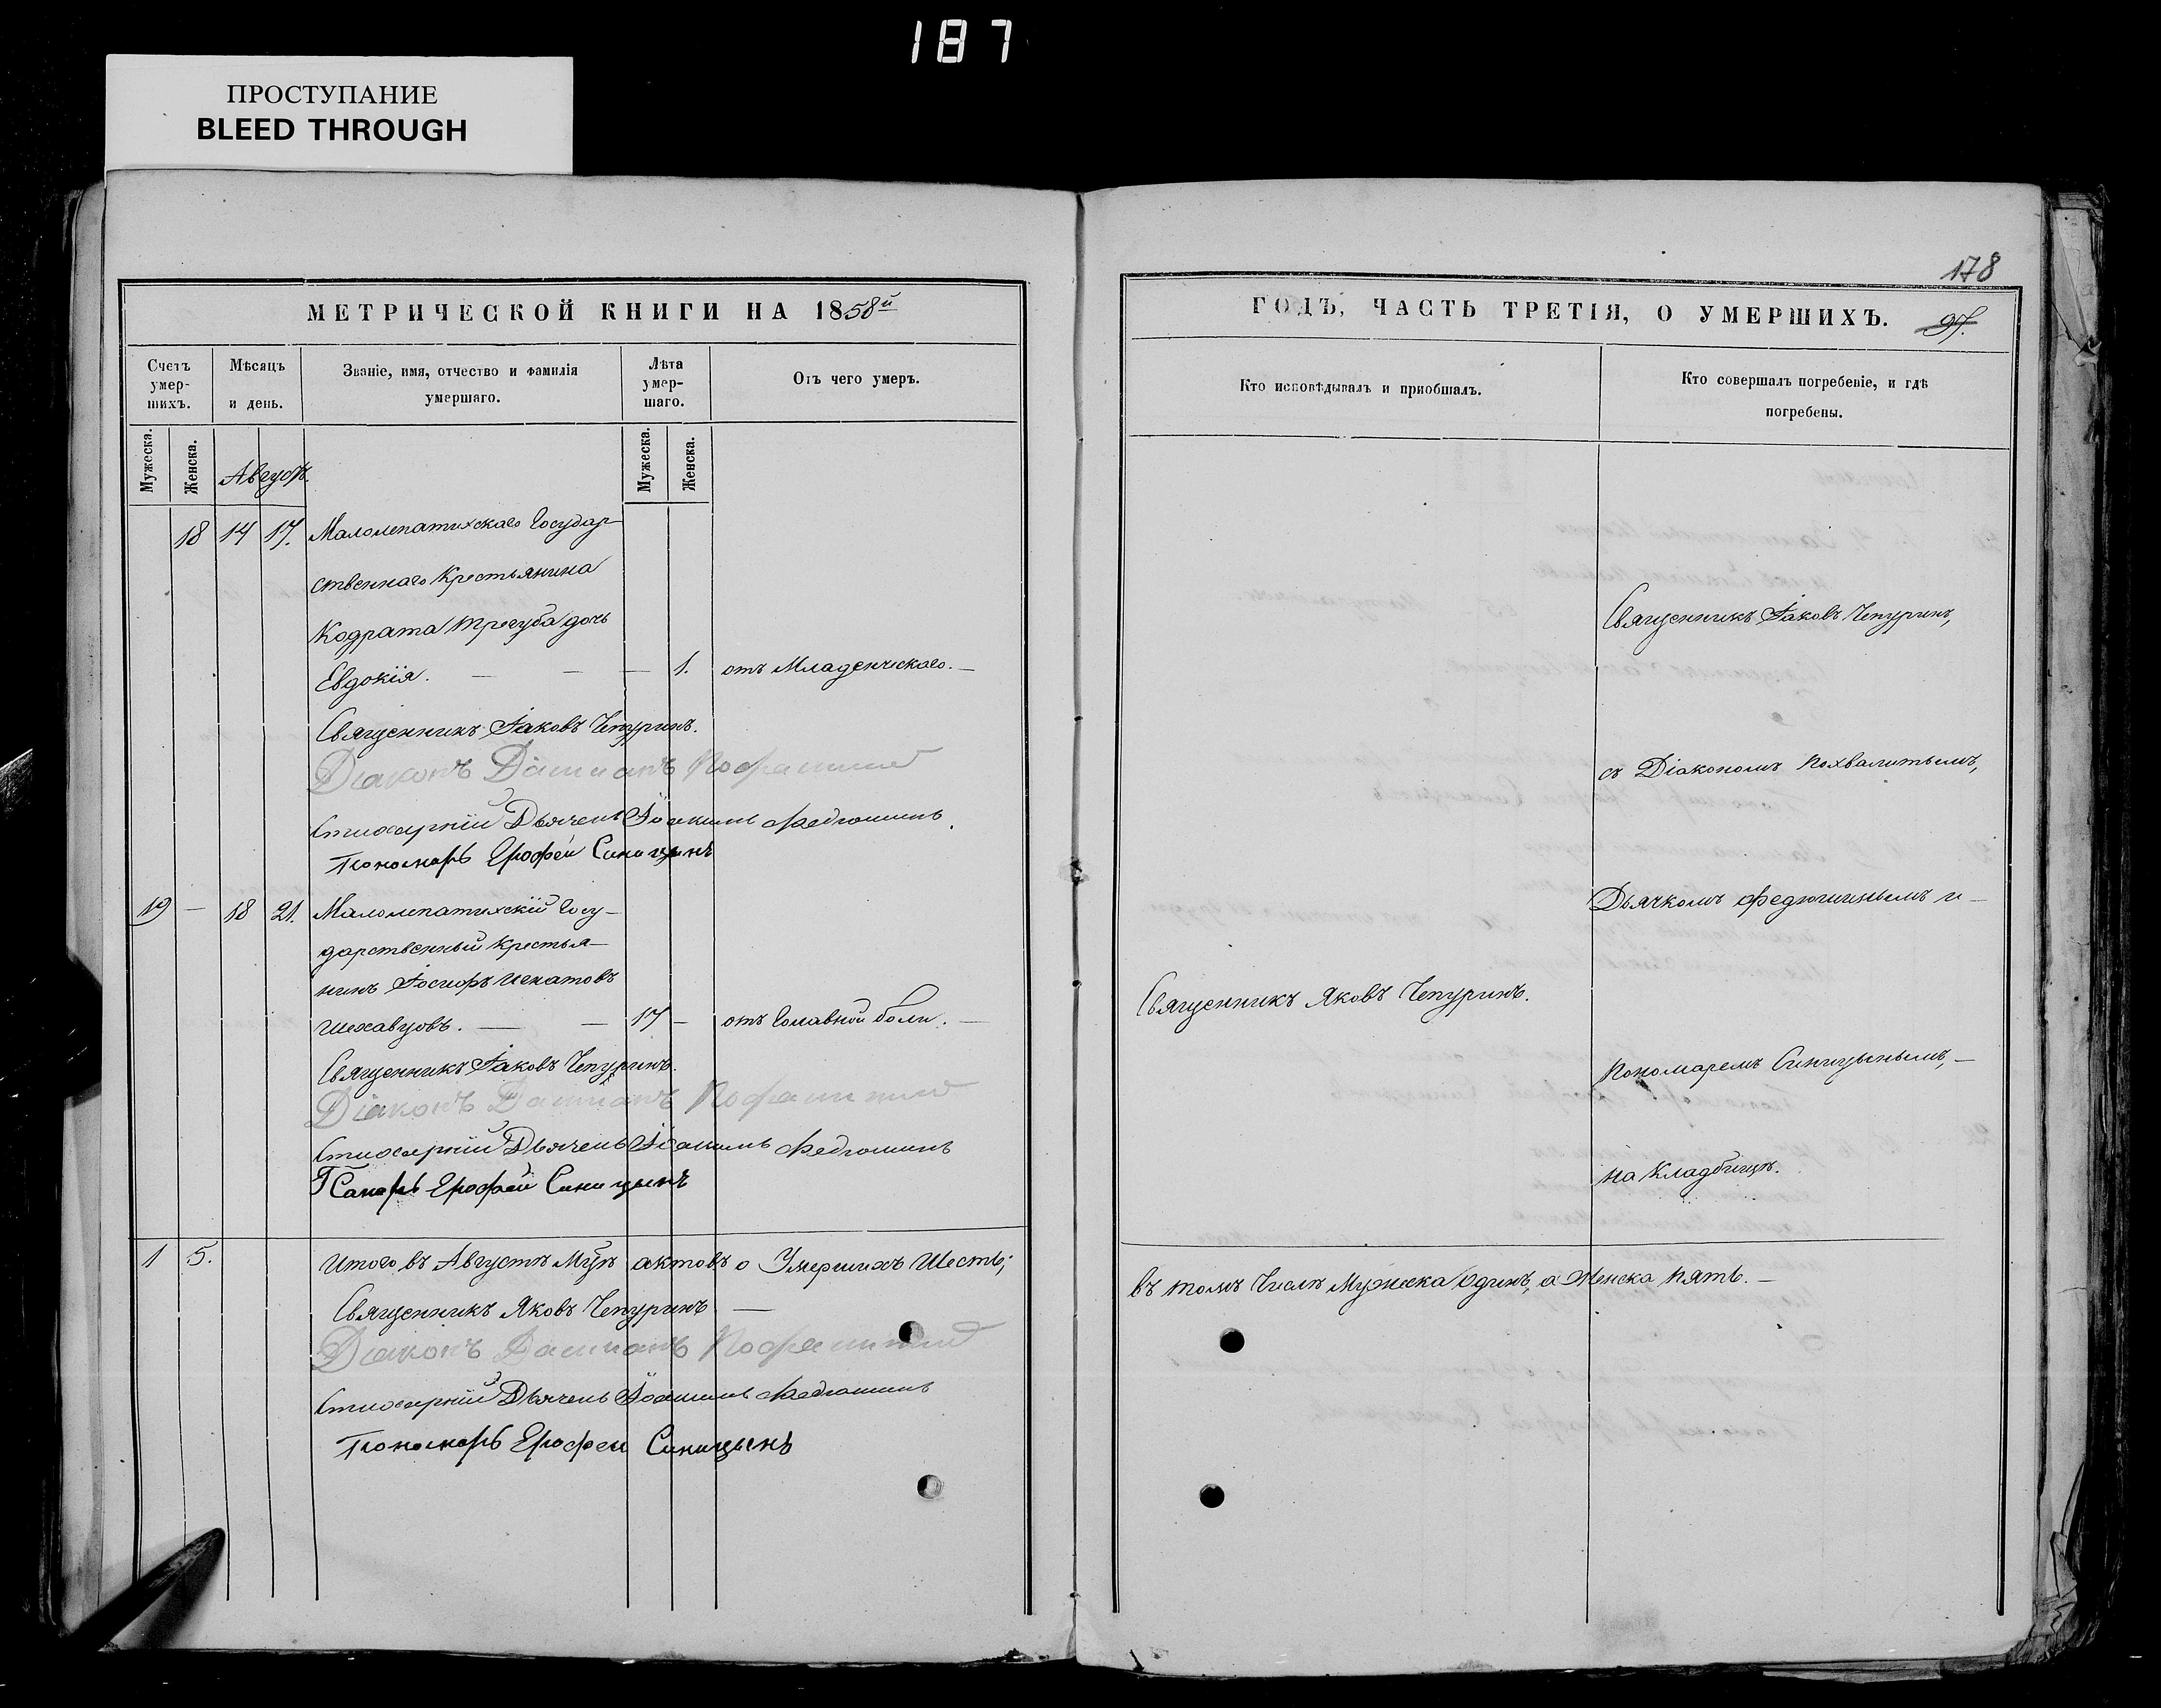 187
ПРОСТУПАНИЕ
BLEED THROUGH
МЕТРИЧЕСКОЙ КНИГИ НА 1858й
Счетъ умер-шихъ.
Мѣсяцъ и день.
Званіе, имя, отчество и фамилія умершаго.
Лѣта умер-шаго.
Отъ чего умеръ.
Мужеска.
Женска.
Августъ.
Мужеска.
Женска.
18 14 17. Малолепатихскаго Государ-
ственнаго Крестьянина
Кодрата Трегуба дочь
Евдокія. — — — 1. отъ Младенческаго. —
Священникъ Іаковъ Чепуринъ.
Діаконъ Даміанъ
Стихарный Дьячекъ Іоакимъ Федюшинъ.
Пономарь Ерофей Синицынъ
19 — 18 21. Малолепатихскій Госу-
дарственный Крестья-
нинъ Іосифъ Игнатовъ
Шехавцовъ. — — 17 — отъ Головной боли. —
Священникъ Іаковъ Чепуринъ.
Діаконъ Даміанъ
Стихарный Дьячекъ Іоакимъ Федюшинъ
Ерофей Синицынъ
1 5. Итого въ Августѣ Мцѣ актовъ о Умершихъ Шесть;
Священникъ Яковъ Чепуринъ —
Діаконъ Даміанъ
Стихарный Дьячекъ Іоакимъ Федюшинъ
Пономарь Ерофей Синицынъ
178
ГОДЪ, ЧАСТЬ ТРЕТІЯ, О УМЕРШИХЪ.
97.
Кто исповѣдывалъ и пріобщалъ.
Кто совершалъ погребеніе, и гдѣ погребены.
Священникъ Іаковъ Чепуринъ,
съ Діакономъ Похвалитымъ,
Дьячкомъ Федюшинымъ и —
Священникъ Яковъ Чепуринъ.
Пономаремъ Синицынымъ, —
на Кладбищѣ.
въ томъ Числѣ Мужеска Одинъ, а Женска пять. —